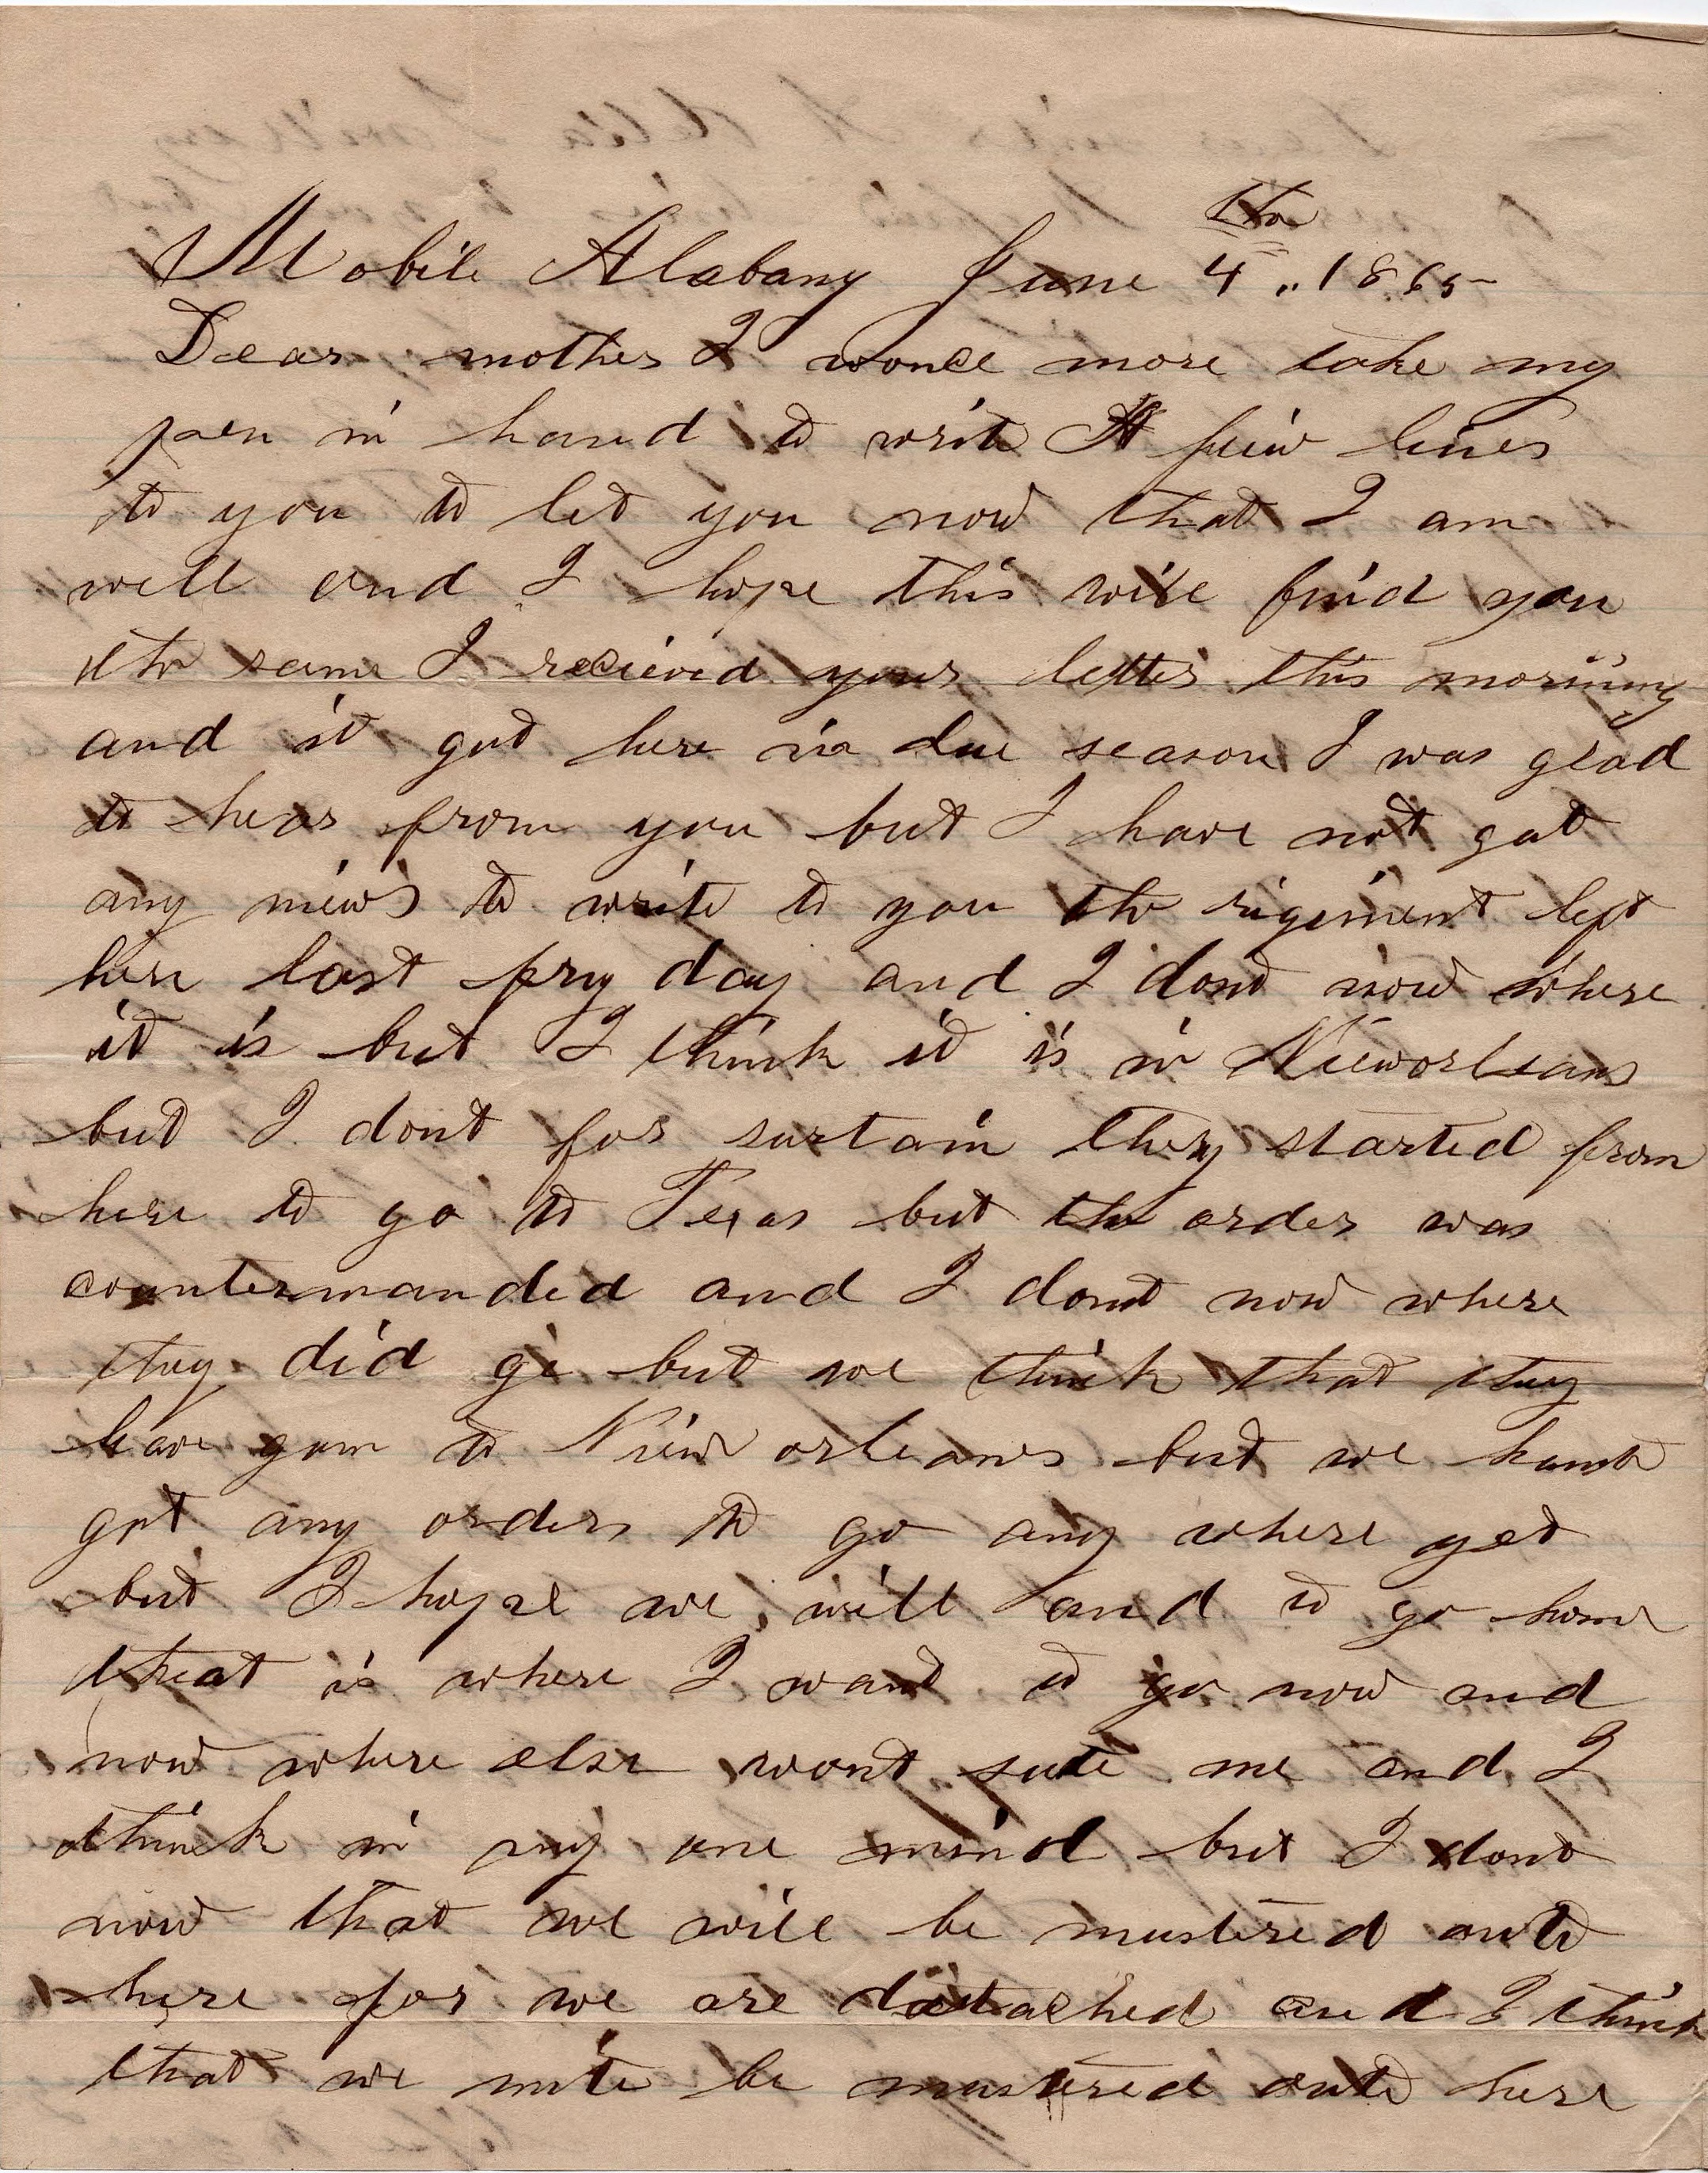 Mobile Alabamy June 4th 1865
Dear mother I wonce more take my
pen in hand to write A feiw lines
to you to let you now that I am
well and I hope this will find you
the same I recieved your letter this morning
and it got here in due season I was glad
to hear from you but I have not got
any niews to write to you the rigiment left
here last fryday and I dont now where
it is but I think it is in Nieworleans
but I dont for surtain they started from
here to go to Texas but the order was
countermanded and I dont now where
they did go but we think that they
have gorn to Niew orleans but we haint
got any orders to go any where yet
but I hope we will and to go home
that is where I want to go now and
now where else wont sute me and I
think in my one mind but I dont
now that we will be mustered oute
here for we are detached and I think
that we mite be mustered oute here